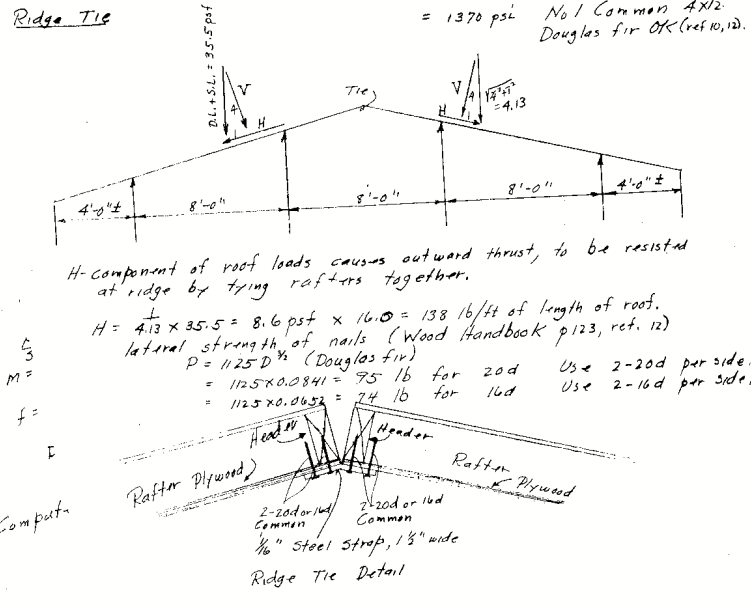 Ridge Tie
= 1370 psi No 1 Common 4x12
Douglas fir OK (ref 10,12).
D.L.+S.L. = 35.5 psf
V
4
1
H
Tie
V
4
H
1
√4²+1²
= 4.13
4'-0"±
8'-0"
8'-0"
8'-0"
4'-0"±
H-component of roof loads causes outward thrust, to be resisted
at ridge by tying rafters together.
H = 1/4.13 x 35.5 = 8.6 psf x 16.0 = 138 lb/ft of length of roof.
lateral strength of nails (Wood Handbook p123, ref. 12)
P = 1125 D 3/2 (Douglas fir)
= 1125 x 0.0841 = 95 lb for 20d Use 2-20d per side.
= 1125 x 0.0652 = 74 lb for 16d Use 2-16d per side.
M =
f =
I
Comput
Header
Header
Rafter Plywood
Rafter
Plywood
2-20d or 16d
Common
2-20d or 16d
Common
1/16" Steel Strap, 1 1/2" wide
Ridge Tie Detail